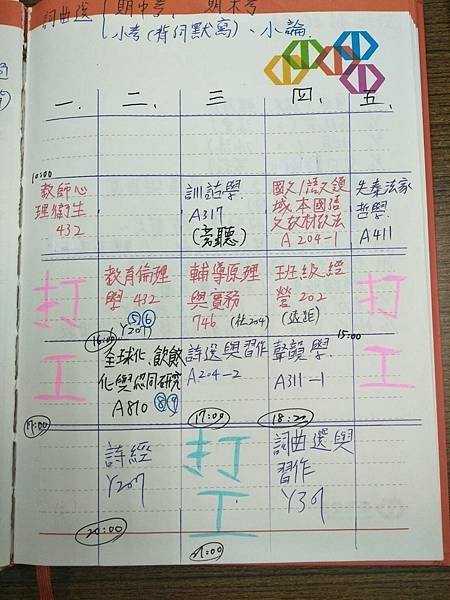 詞曲選 期中考, 期末考
小考(背詞默寫)、小論.
一. 二、 三 四、 五.
10:00
教師心
理衛生
432
訓詁學.
A317
(旁聽)
國文/語文領
域本國語
文教材教法
A 204-1
先秦法家
哲學.
A411
打
工
教育倫理
學 432
⑤⑥
Y207
16:00
輔導原理
與實務
746 (社204)
班級經
營 202
(遠距)
打
工
15:00
全球化、飲食
化與認同研究
A810 ⑧⑨
詩選與習作
A204-2
17:00
聲韻學.
A311-1
18:20
17:00
詩經
Y207
20:00
打
工
21:00
詞曲選與
習作
Y301